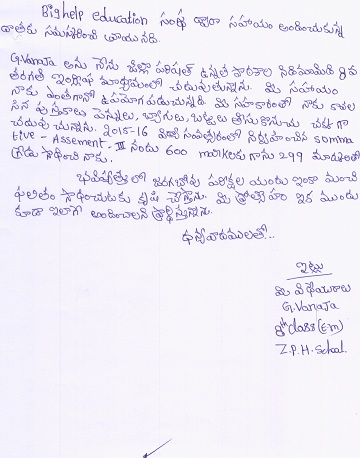 Bighelp education సంస్థ ద్వారా సహాయం అందించుచున్న
దాతకు నమస్కరించి వ్రాయునది.
G.Vanaja అను నేను జిల్లా పరిషత్ ఉన్నత పాఠశాల 8వ
తరగతి ఇంగ్లీషు మాధ్యమంలో చదువుతున్నాను. మీ సహాయం
నాకు ఎంతగానో ఉపయోగపడుచున్నది. మీ సహకారంతో నాకు కావల
సిన పుస్తకాలు పెన్నులు, బ్యాగులు, బట్టలు తీసుకొనుచు చక్కగా
చదువుచున్నాను. 2015-16 విద్యా సంవత్సరంలో నిర్వహించిన Somma
tive - Assement - III నందు 600 మార్కులకు గాను 299 మార్కులతో
గ్రేడు సాధించి నాను.
భవిష్యత్తులో జరగబోవు పరీక్షల యందు ఇంకా మంచి
ఫలితం సాధించుటకు కృషి చేస్తాను. మీ ప్రోత్సాహం ఇక ముందు
కూడా ఇలాగే అందించాలని ప్రార్థిస్తున్నాను.
ధన్యవాదములతో..
ఇట్లు
మీ విధేయురాలు
G.Vanaja
8th class (Em)
Z.P.H. School